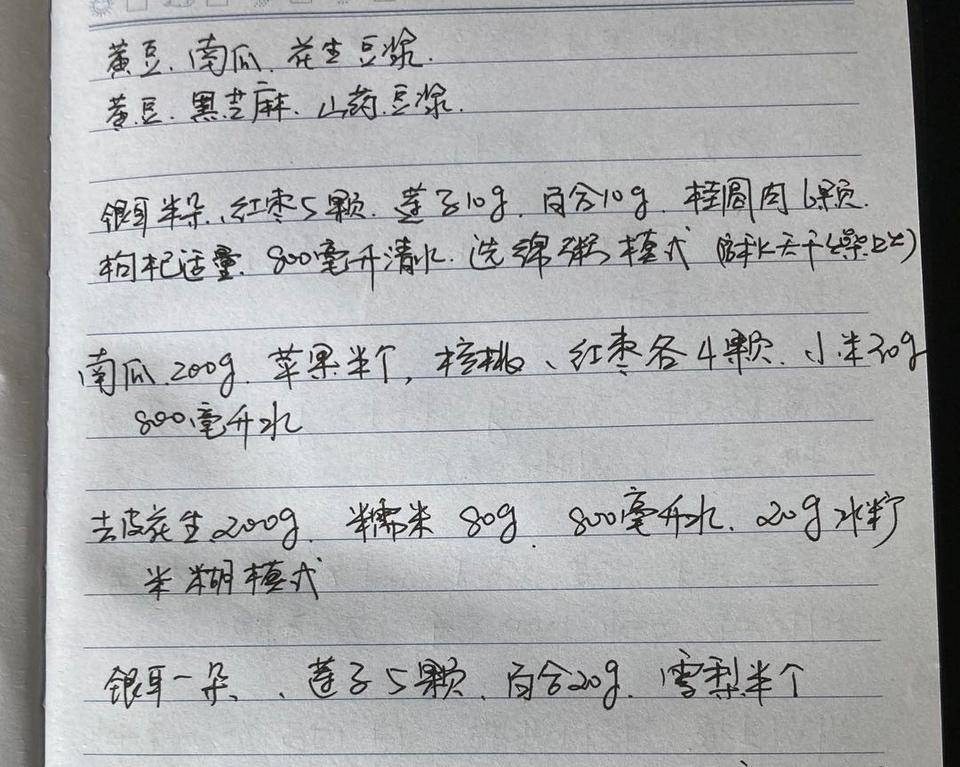 黄豆、南瓜、花生豆浆.
黄豆、黑芝麻、山药豆浆.
银耳半朵、红枣5颗、莲子10g、百合10g、桂圆肉6颗.
枸杞适量、800毫升清水、选绵粥模式（解秋天干燥上火）
南瓜200g、苹果半个，核桃、红枣各4颗、小米30g
800毫升水
去皮花生200g、糯米80g、800毫升水、20g冰糖
米糊模式
银耳一朵、莲子5颗、百合20g、雪梨半个